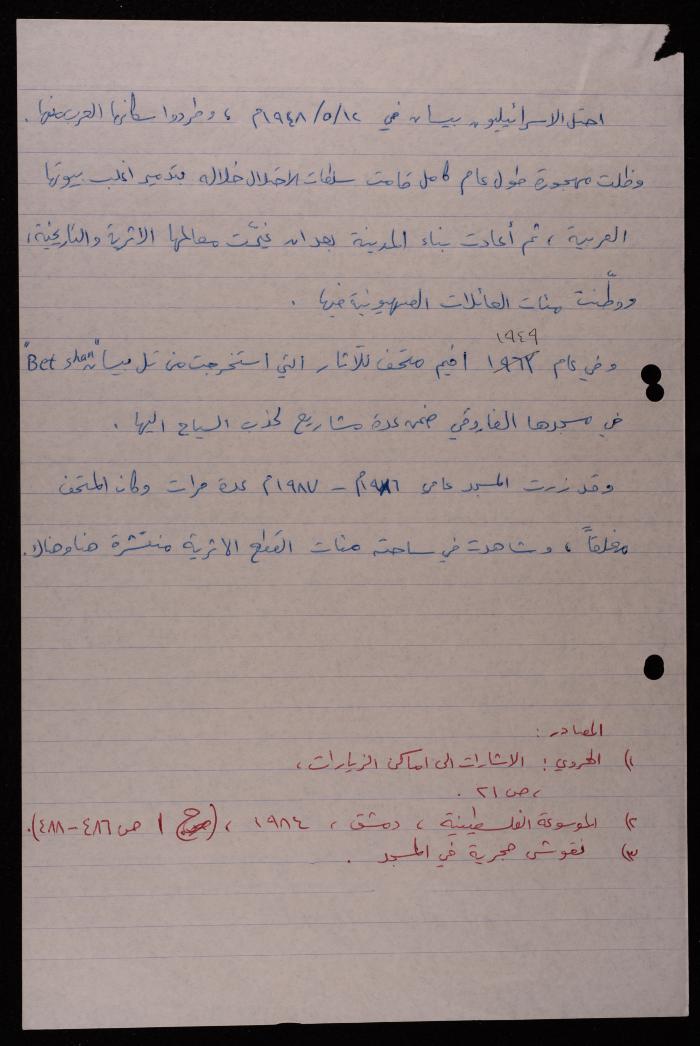 احتل الاسرائيليون بيسان في ١٢/٥/١٩٤٨م ، وطردوا سكانها العرب منها .
وظلت مهجورة طول عام كامل قامت سلطات الاحتلال خلاله بتدمير اغلب بيوتها
العربية ، ثم أعادت بناء المدينة بعد ان غيّمت معالمها الاثرية والتاريخية ،
ووطّنت مئات العائلات الصهيونية فيها .
١٩٤٩
وفي عام ١٩٦٢ اقيم متحف للآثار التي استخرجت من تل بيسان "Bet shan"
في مسجدها الفاروقي ضمن عدة مشاريع لجذب السياح اليها .
وقد زرت المسجد عامي ١٩٨٦م – ١٩٨٧م عدة مرات وكان المتحف
مغلقاً ، وشاهدت في ساحته مئات القطع الاثرية منتشرة هنا وهناك .
المصادر :
١) الهروي : الاشارات الى اماكن الزيارات ،
، ص ٢١ .
٢) الموسوعة الفلسطينية ، دمشق ، ١٩٨٤ ، (ج ١ ص ٤٨٦ – ٤٨٨) .
٣) نقوش حجرية في المسجد .